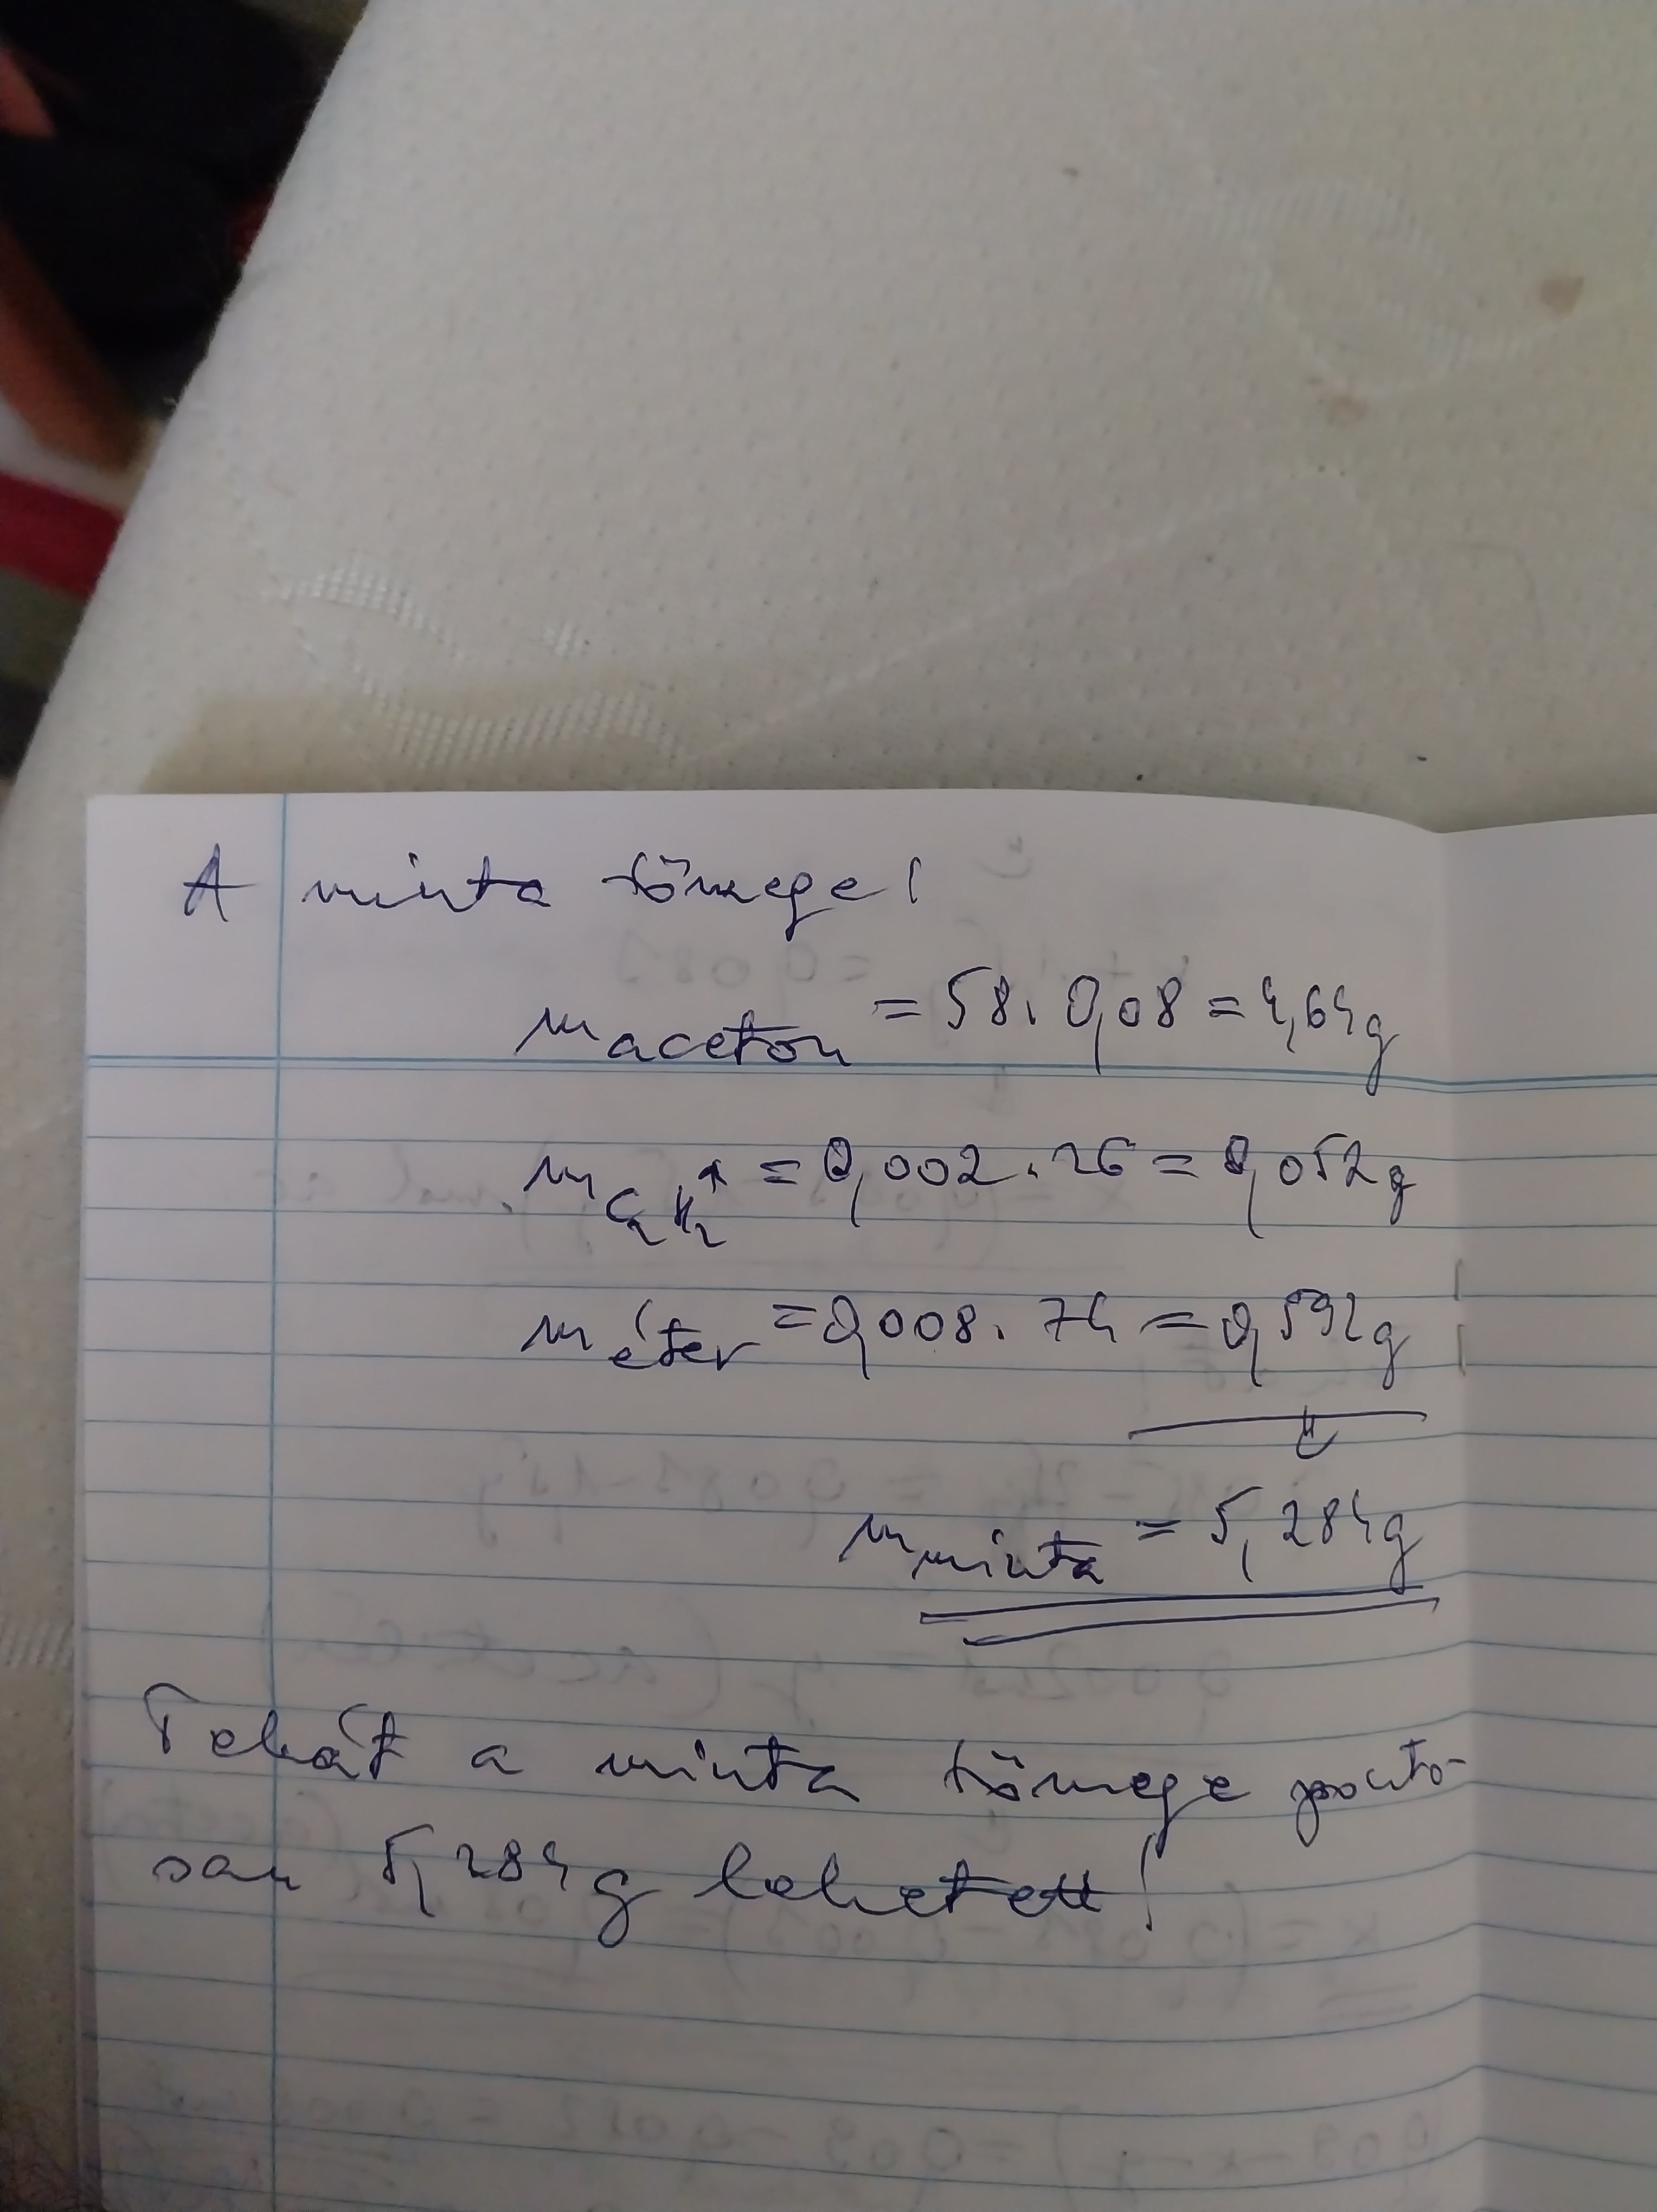 A minta tömege!
m aceton = 58 · 0,08 = 4,64g
m C2H2 = 0,002 · 26 = 0,052g
m éter = 0,008 · 74 = 0,592g
m minta = 5,284g
Tehát a minta tömege ponto-
san 5,284g lehetett!